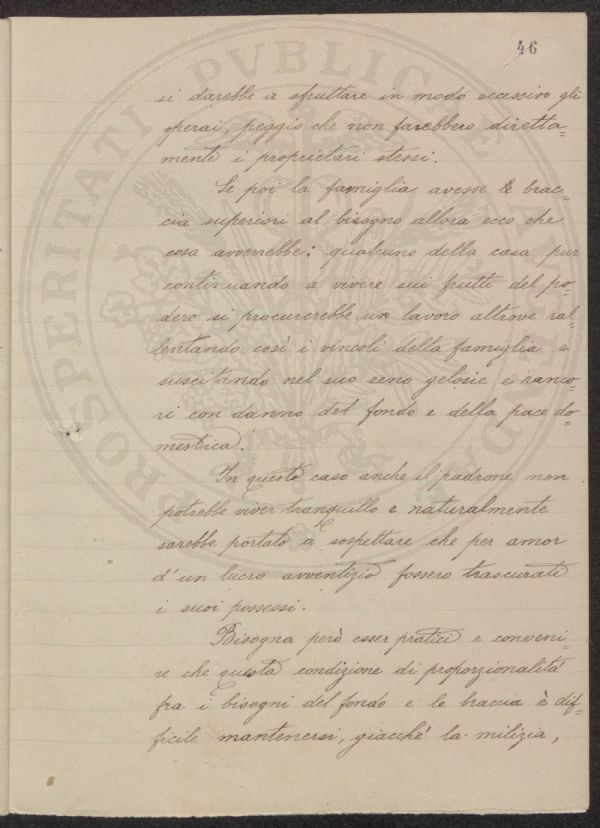 46
si darebbe a sfruttare in modo eccessivo gli
operai, peggio che non farebbero diretta=
mente i proprietari stessi.
Se poi la famiglia avesse le brac=
cia superiori al bisogno allora ecco che
cosa avverrebbe: qualcuno della casa pur
continuando a vivere sui frutti del po=
dere si procurerebbe un lavoro altrove ral=
lentando così i vincoli della famiglia e
suscitando nel suo seno gelosie e ranco=
ri con danno del fondo e della pace do=
mestica.
In questo caso anche il padrone non
potrebbe viver tranquillo e naturalmente
sarebbe portato a sospettare che per amor
d'un lucro avventizio fossero trascurati
i suoi possessi.
Bisogna però esser pratici e conveni=
re che questa condizione di proporzionalità
fra i bisogni del fondo e le braccia è dif=
ficile mantenersi, giacché la milizia,
PROSPERITATI PVBLICAE